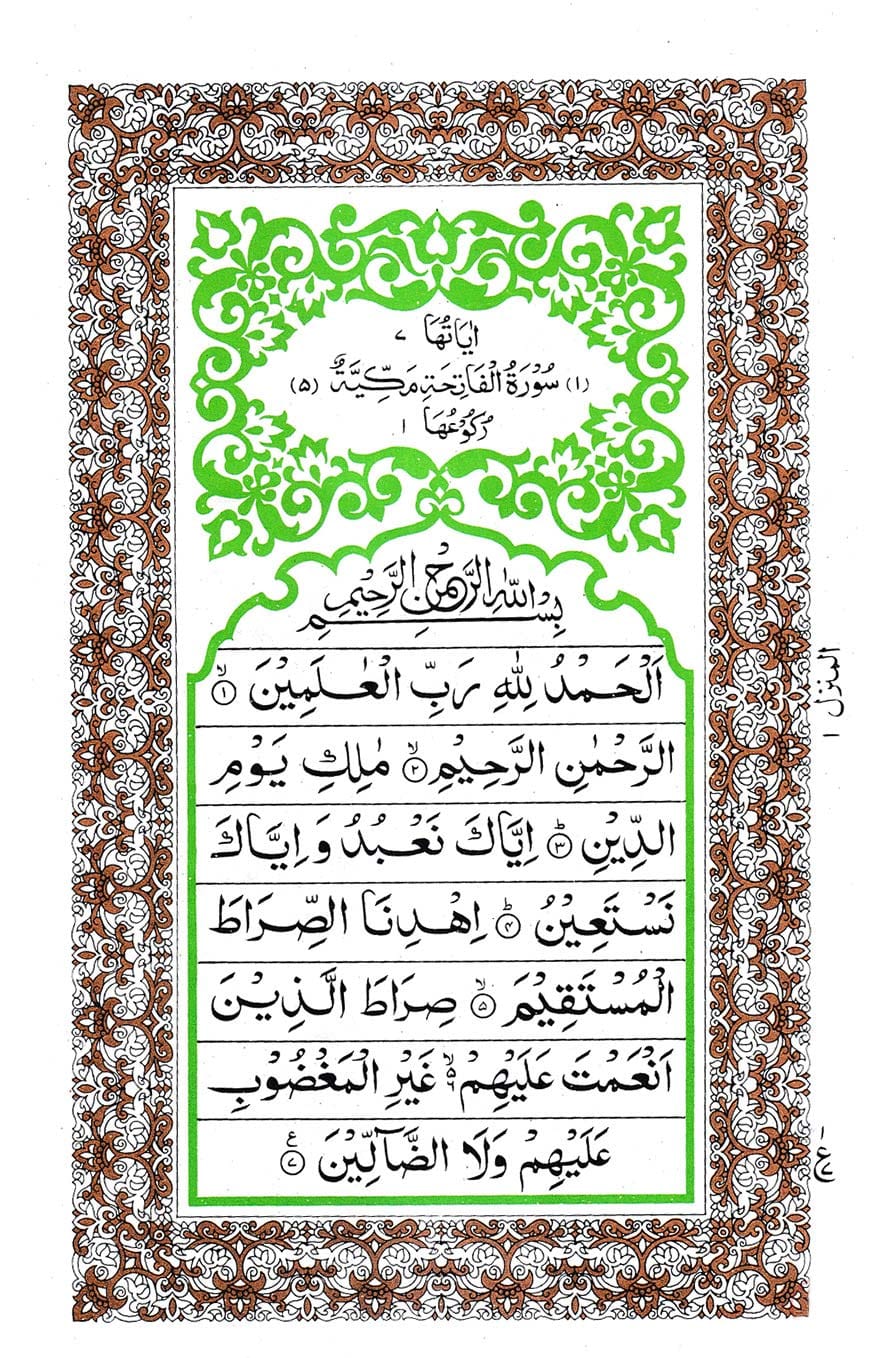 اٰيَاتُهَا ٧
(١) سُوْرَةُ الْفَاتِحَةِ مَكِّيَّةٌ (٥)
رُكُوْعُهَا ١
بِسْمِ اللّٰهِ الرَّحْمٰنِ الرَّحِيْمِ
اَلْحَمْدُ لِلّٰهِ رَبِّ الْعٰلَمِيْنَ ۙ﴿١﴾
الرَّحْمٰنِ الرَّحِيْمِ ۙ﴿٢﴾ مٰلِكِ يَوْمِ
الدِّيْنِ ؕ﴿٣﴾ اِيَّاكَ نَعْبُدُ وَ اِيَّاكَ
نَسْتَعِيْنُ ؕ﴿٤﴾ اِهْدِنَا الصِّرَاطَ
الْمُسْتَقِيْمَ ۙ﴿٥﴾ صِرَاطَ الَّذِيْنَ
اَنْعَمْتَ عَلَيْهِمْ ۙ۬ غَيْرِ الْمَغْضُوْبِ
عَلَيْهِمْ وَلَا الضَّآلِّيْنَ ﴿٧﴾ ع
المنزل ١
١ ع ٧